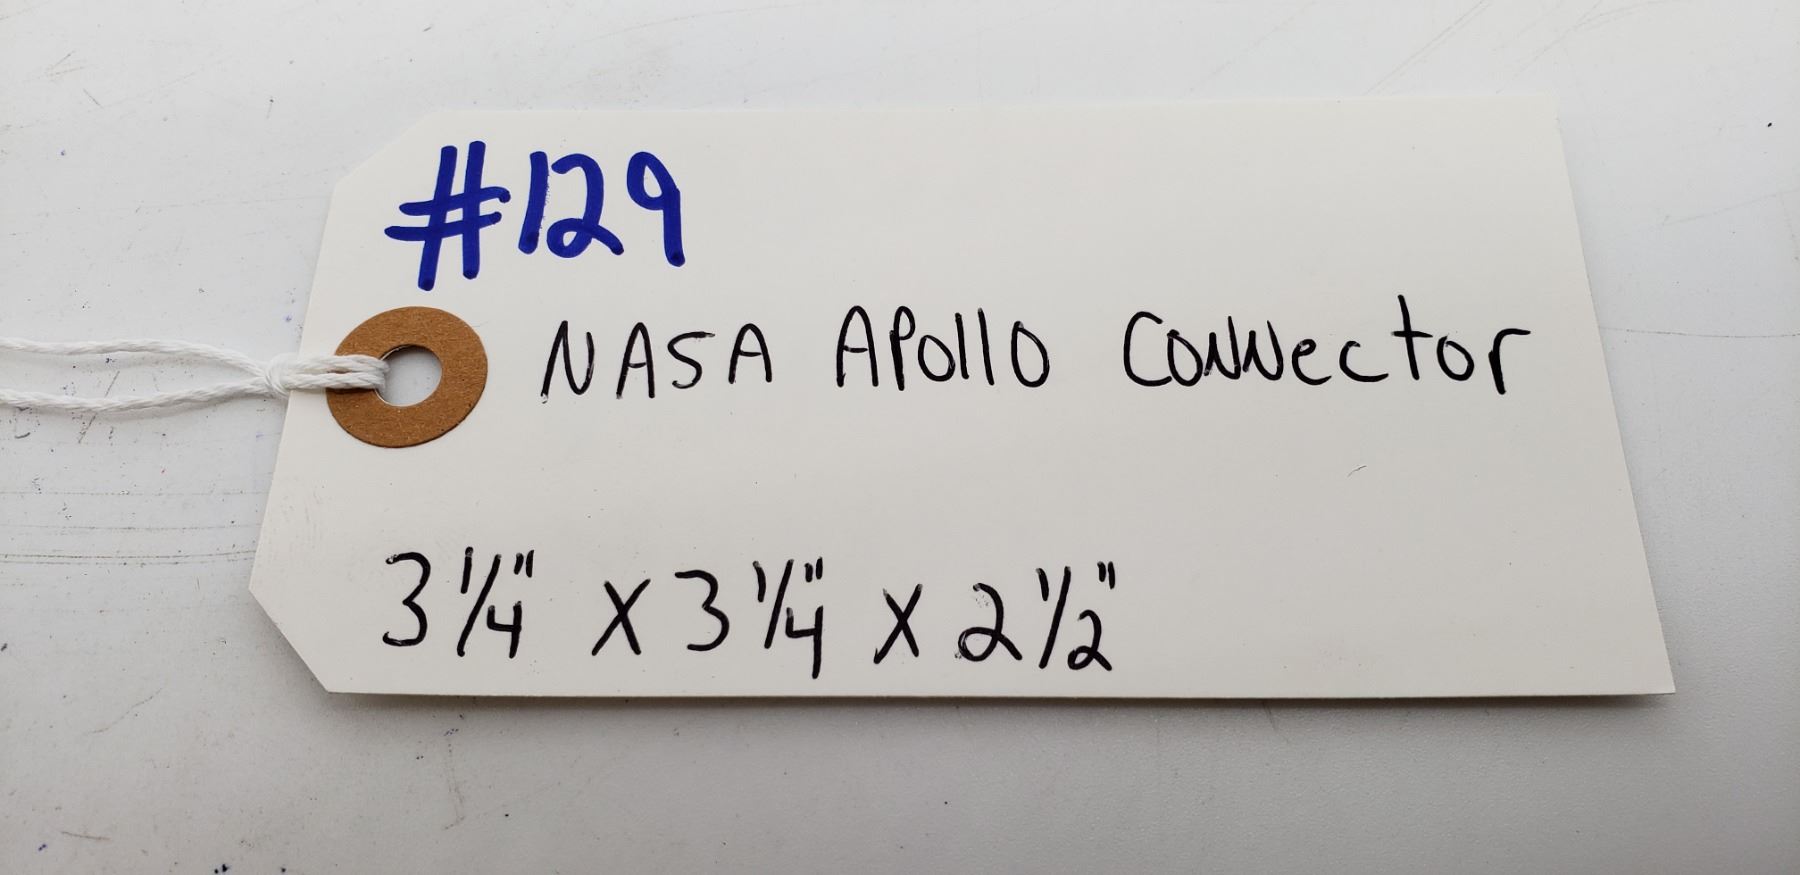 #129
NASA APollo Connector
3 1/4" X 3 1/4" X 2 1/2"